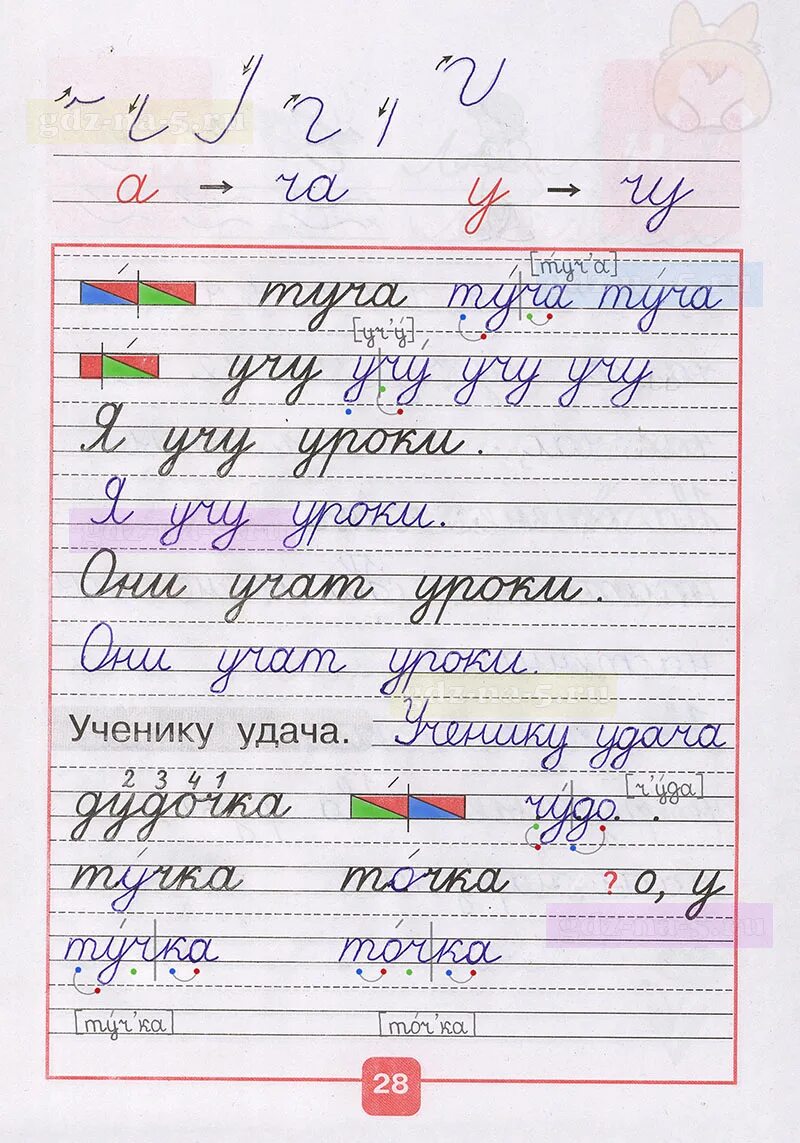 gdz-na-5.ru
а → ча у → чу
[ту́ч'а]
туча ту́ча ту́ча
[уч'у́]
учу учу́ учу учу
Я учу уроки.
Я учу уроки.
Они учат уроки.
Они учат уроки.
gdz-na-5.ru
Ученику удача. Ученику удача
2 3 4 1
дудочка чу́до. . [ч'у́да]
ту́чка то́чка ? о, у
gdz-na-5.ru
ту́чка то́чка
[ту́ч'ка] [то́ч'ка]
28